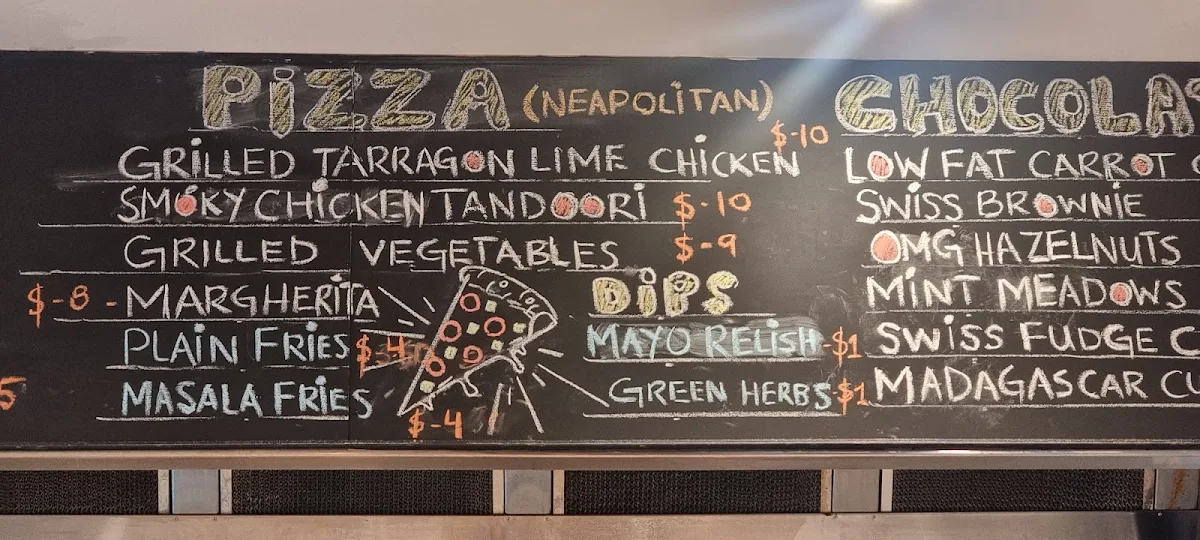 PIZZA (NEAPOLITAN)
GRILLED TARRAGON LIME CHICKEN $-10
SMOKY CHICKEN TANDOORI $-10
GRILLED VEGETABLES $-9
$-8-MARGHERITA
PLAIN FRIES $-4
MASALA FRIES $-4
DIPS
MAYO RELISH $1
GREEN HERBS $1
LOW FAT CARROT
SWISS BROWNIE
OMG HAZELNUTS
MINT MEADOWS
SWISS FUDGE
MADAGASCAR